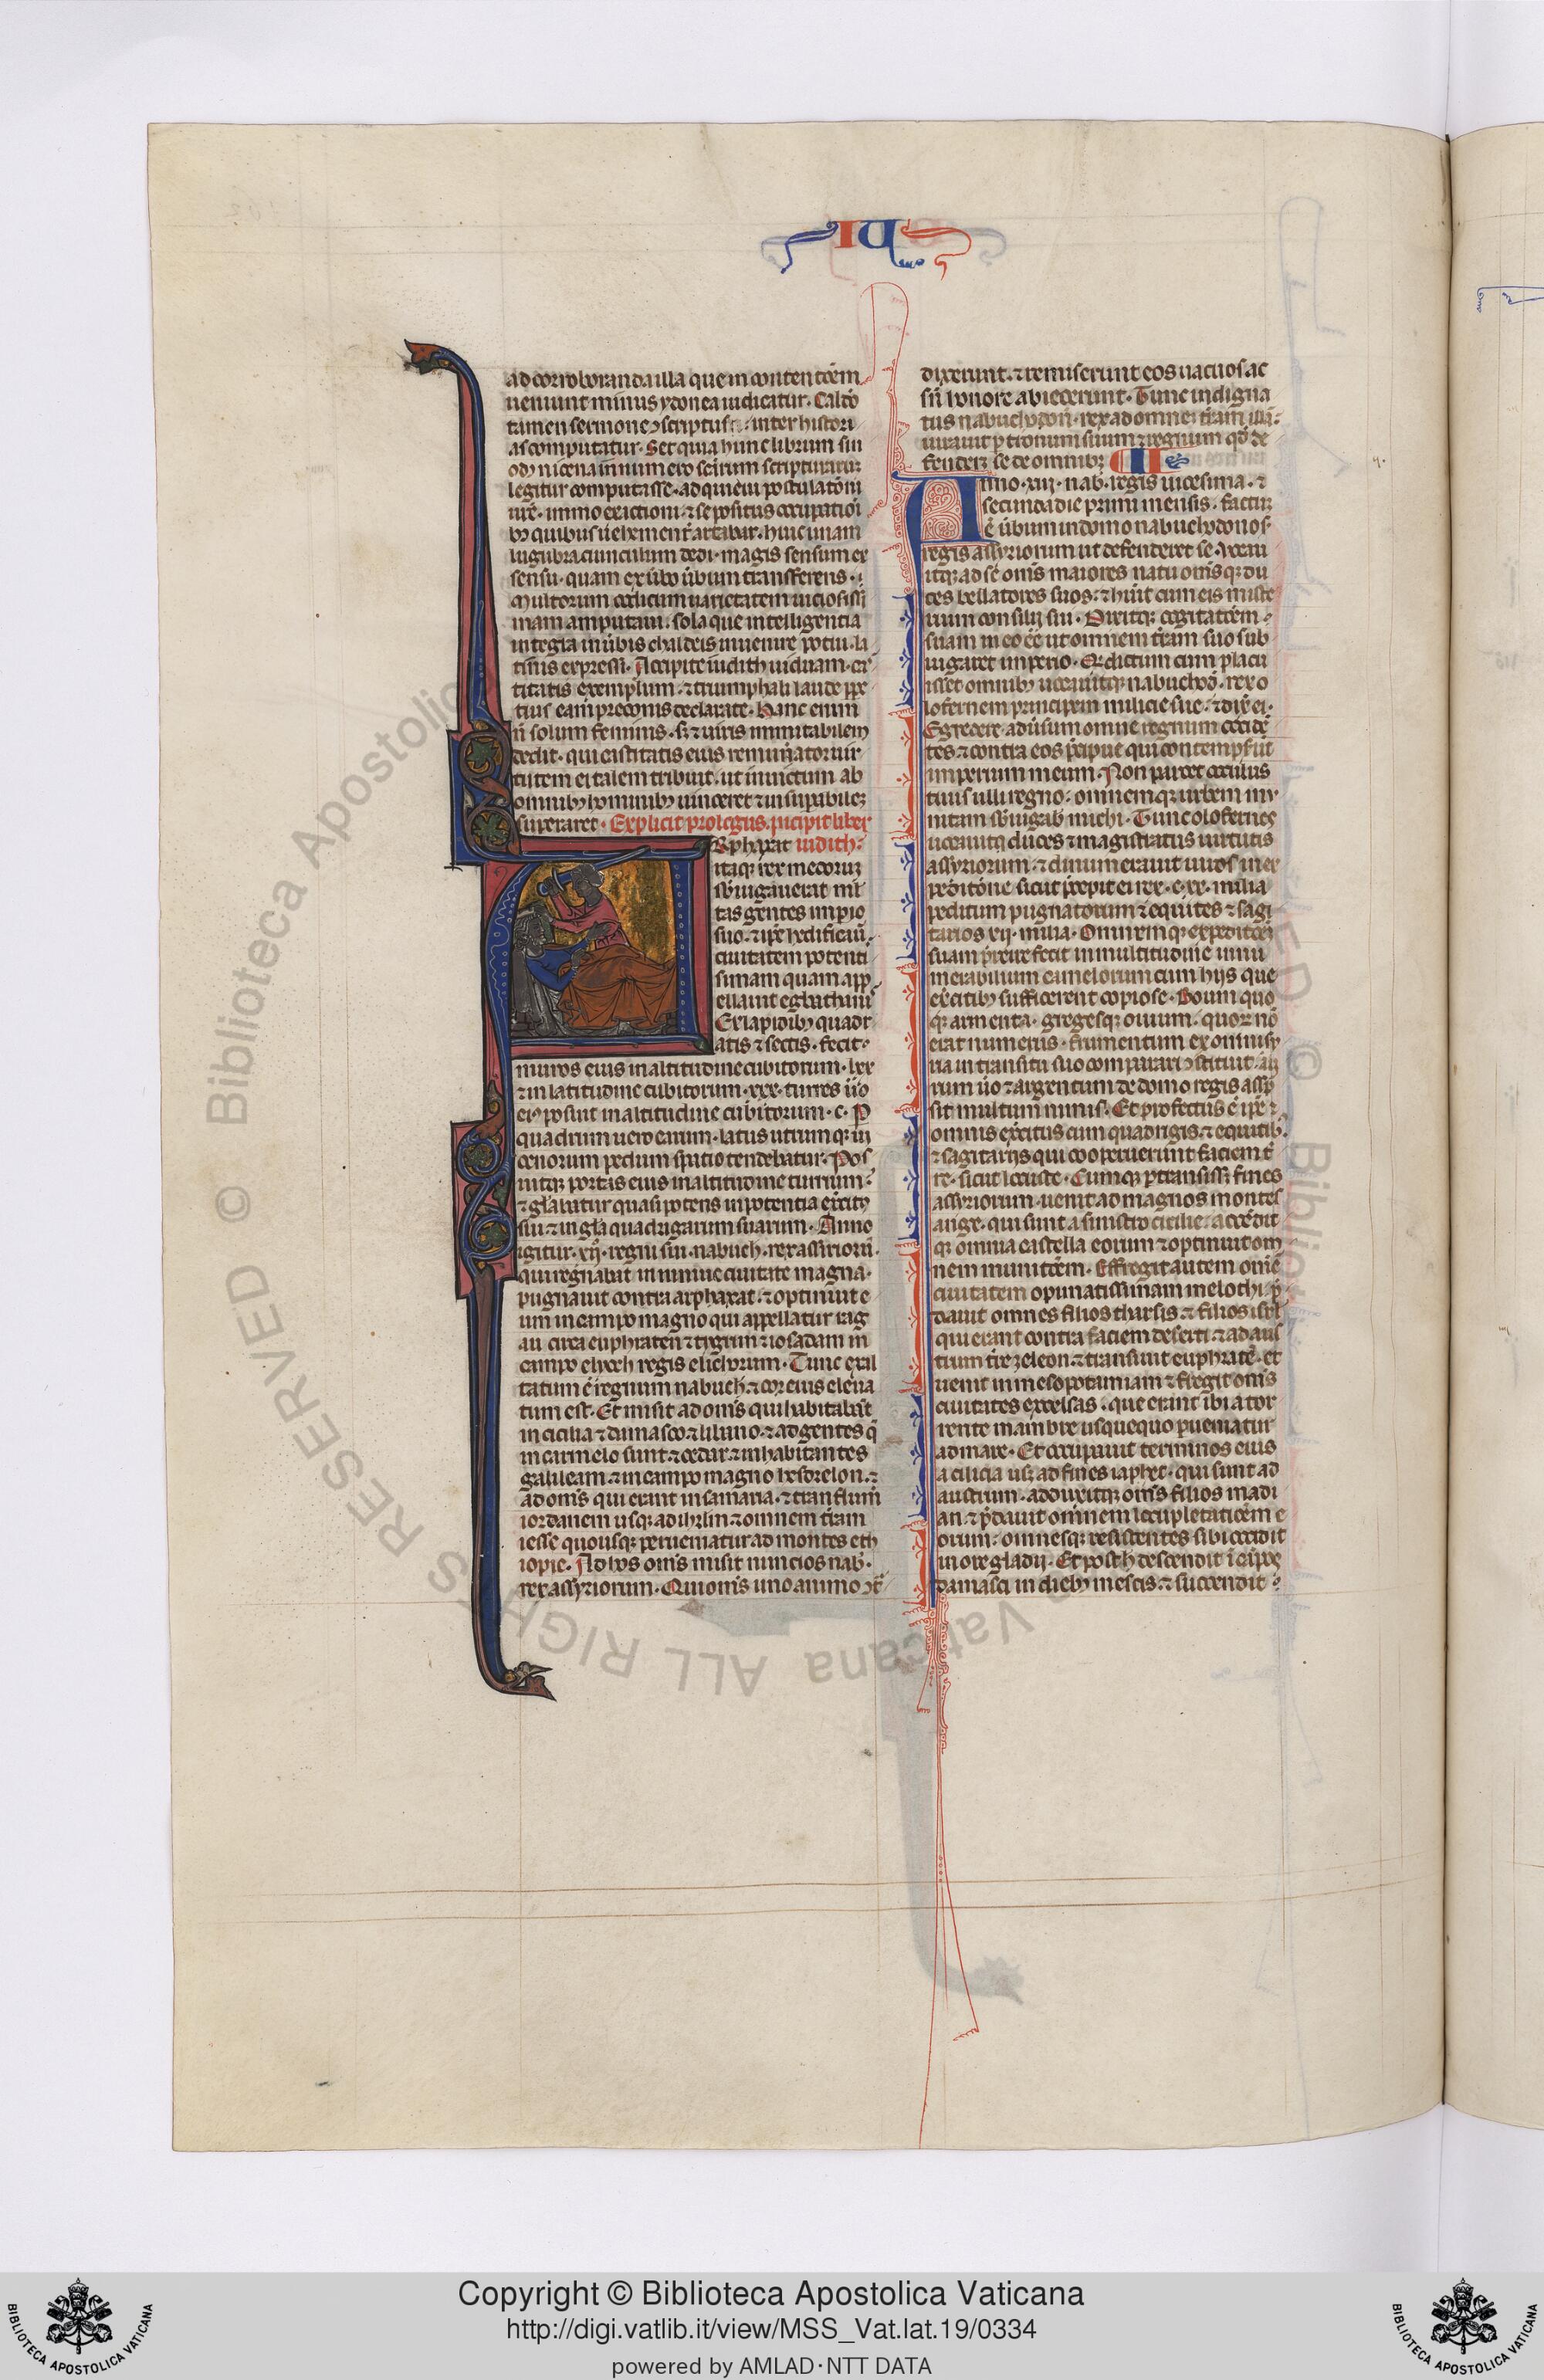 IU
ad corroboranda illa que in contentõem
ueniunt minus ydonea iudicatur. Caldo
tamen sermone ꝯscriptus inter histori
as computatur. Set quia hunc librum sin
odꝫ nicena in numero scãrum scripturarum
legitur computasse. ad quieui postulatõni
ure. immo exictioni. ⁊ sepositus occupationi
bꝫ quibus uehement̃ artabar. huic unam
lugubraciunculam dedi. magis sensum ex
sensu. quam ex ũbo ũbum transferens.
Multorum codicum uarietatem uiciosissi
mam amputaui. sola que intelligentia
integra in ũbis chaldeis inuenire potui. la
tinis expressi. Accipite iudith uiduam. cas
titatis exemplum. ⁊ triumphali laude ppe
tuis eam preconiis declarate. Hanc enim
ñ solum feminis. sꝫ ⁊ uiris imitabilem
dedit. qui castitatis eius remuñator uir
tutem ei talem tribuit. ut inuictum ab
omnibꝫ hominibꝫ uinceret ⁊ insupabilem
superaret. Explicit prologus. incipit liber
iudith.
Arphaxat
itaqꝫ rex medorum
sbiugauerat ml
tas gentes impio
suo. ⁊ ipẽ hedificauit
ciuitatem potenti
simam quam app
ellauit egbathanis
Ex lapidibꝫ quadr
atis ⁊ sectis. fecit
muros eius in altitudine cubitorum. lxx
⁊ in latitudine cubitorum. xxx. turres ũo
eiꝫ posuit in altitudine cubitorum. c. P
quadrum uero earum. latus utrumqꝫ ui
cenorum pedum spatio tendebatur. Pos
uitqꝫ portas eius in altitudine turrium.
⁊ glabatur quasi potens in potentia exẽcitꝫ
sui ⁊ in gla quadrigarum suarum. Anno
igitur. xij. regni sui. nabuch. rex assiriorũ.
qui regnabat in niniue ciuitate magna.
pugnauit contra arphaxat. ⁊ optinuit e
um in campo magno qui appellatur rag
au circa euphraten ⁊ tygrim ⁊ iosadam in
campo elyoch regis elichorum. Tunc exal
tatum ẽ regnum nabuch. ⁊ cor eius eleua
tum est. Et misit ad onĩs qui habitabãt
in cicilia ⁊ damasco ⁊ libano. ⁊ ad gentes q̃
in carmelo sunt ⁊ cedar. ⁊ inhabitantes
galileam. ⁊ in campo magno hesdrelon. ⁊
ad onĩs qui erant in samaria. ⁊ tran flum
iordanem usqꝫ ad ihrlm ⁊ omnem tr̃am
iesse quousqꝫ perueniatur ad montes eth
iopie. Ad hos onĩs misit nuncios nab.
rex assyriorum. Qui onĩs uno animo ꝯt̃
dixerunt. ⁊ remiserunt eos uacuos. ac
sñ honore abiecerunt. Tunc indigna
tus nabuchodoñ. rex ad omnem tr̃am illã.
iurauit p tronum suum ⁊ regnum qd̃ de
fenderꝫ se de omnibꝫ II
Anno. xiij. nab. regis uicesima. ⁊
secunda die primi mensis. factum
ẽ ũbum in domo nabuchodonos̃
regis assyriorum ut defenderet se. Vocau
itqꝫ ad se onĩs maiores natu onĩsqꝫ du
ces bellatores suos. ⁊ hũit cum eis miste
rium consilij sui. Dixitqꝫ cogitatõem
suam in eo eẽ ut omnem tr̃am suo sub
iugaret imperio. Qr dictum cum placu
isset omnibꝫ uocauitqꝫ nabuchod. rex o
lofernem principem milicie sue. ⁊ dix̃ ei.
Egredere aduersum omne regnum occidẽ
tes ⁊ contra eos p̃cipue qui contempserũt
imperium meum. Non parcet oculus
tuus ulli regno. omnemqꝫ urbem mu
nitam sbiugab michi. Tunc olofernes
uocauitqꝫ duces ⁊ magistratus uirtutis
assyriorum. ⁊ dinumerauit uiros in ex
peditõne sicut p̃cepit ei rex. c. xx. milia
peditum pugnatorum ⁊ equites ⁊ sagi
tarios xij. milia. Omnemqꝫ expeditõem
suam p̃reire fecit in multitudine innu
merabilium camelorum cum hijs que
exẽcitibꝫ sufficerent copiose. Boum quo
qꝫ armenta. gregesqꝫ ouium. quorum nõ
erat numerus. frumentum ex omni sy
ria in transitu suo comparari ꝯstituit. au
rum ũo ⁊ argentum de domo regis assũp
sit multum nimis. Et profectus ẽ ipẽ ⁊
omnis exẽcitus cum quadrigis. ⁊ equitib.
⁊ sagitarijs qui cooperuerunt faciem t̃
re. sicut locuste. Cumqꝫ ptransisset fines
assyriorum. uenit ad magnos montes
ange. qui sunt a sinistro cicilie. ascendit
qꝫ omnia castella eorum ⁊ optinuit om
nem munitõem. Effregit autem onẽ
ciuitatem opinatissimam melothi. p̃
dauit omnes filios tharsis. ⁊ filios isrl̃
qui erant contra faciem deserti. ⁊ ad aus
trum tr̃e zeleon. ⁊ transiuit euphratẽ. et
uenit in mesopotamiam ⁊ fregit onĩs
ciuitates excelsas. que erant ibi a tor
rente mambre usquequo pueniatur
ad mare. Et occupauit terminos eius
a cilicia usqꝫ ad fines iaphet. qui sunt ad
austrum. adduxitqꝫ onĩs filios madi
an. ⁊ p̃dauit omnem locupletatiõem e
orum. omnesqꝫ resistentes sibi occidit
in ore gladij. Et post h̃ descendit ĩ cãpos
damasci in diebꝫ messis. ⁊ succendit
© Biblioteca Apostolica Vaticana ALL RIGHTS RESERVED
Copyright © Biblioteca Apostolica Vaticana
http://digi.vatlib.it/view/MSS_Vat.lat.19/0334
powered by AMLAD·NTT DATA
BIBLIOTECA APOSTOLICA VATICANA
BIBLIOTECA APOSTOLICA VATICANA